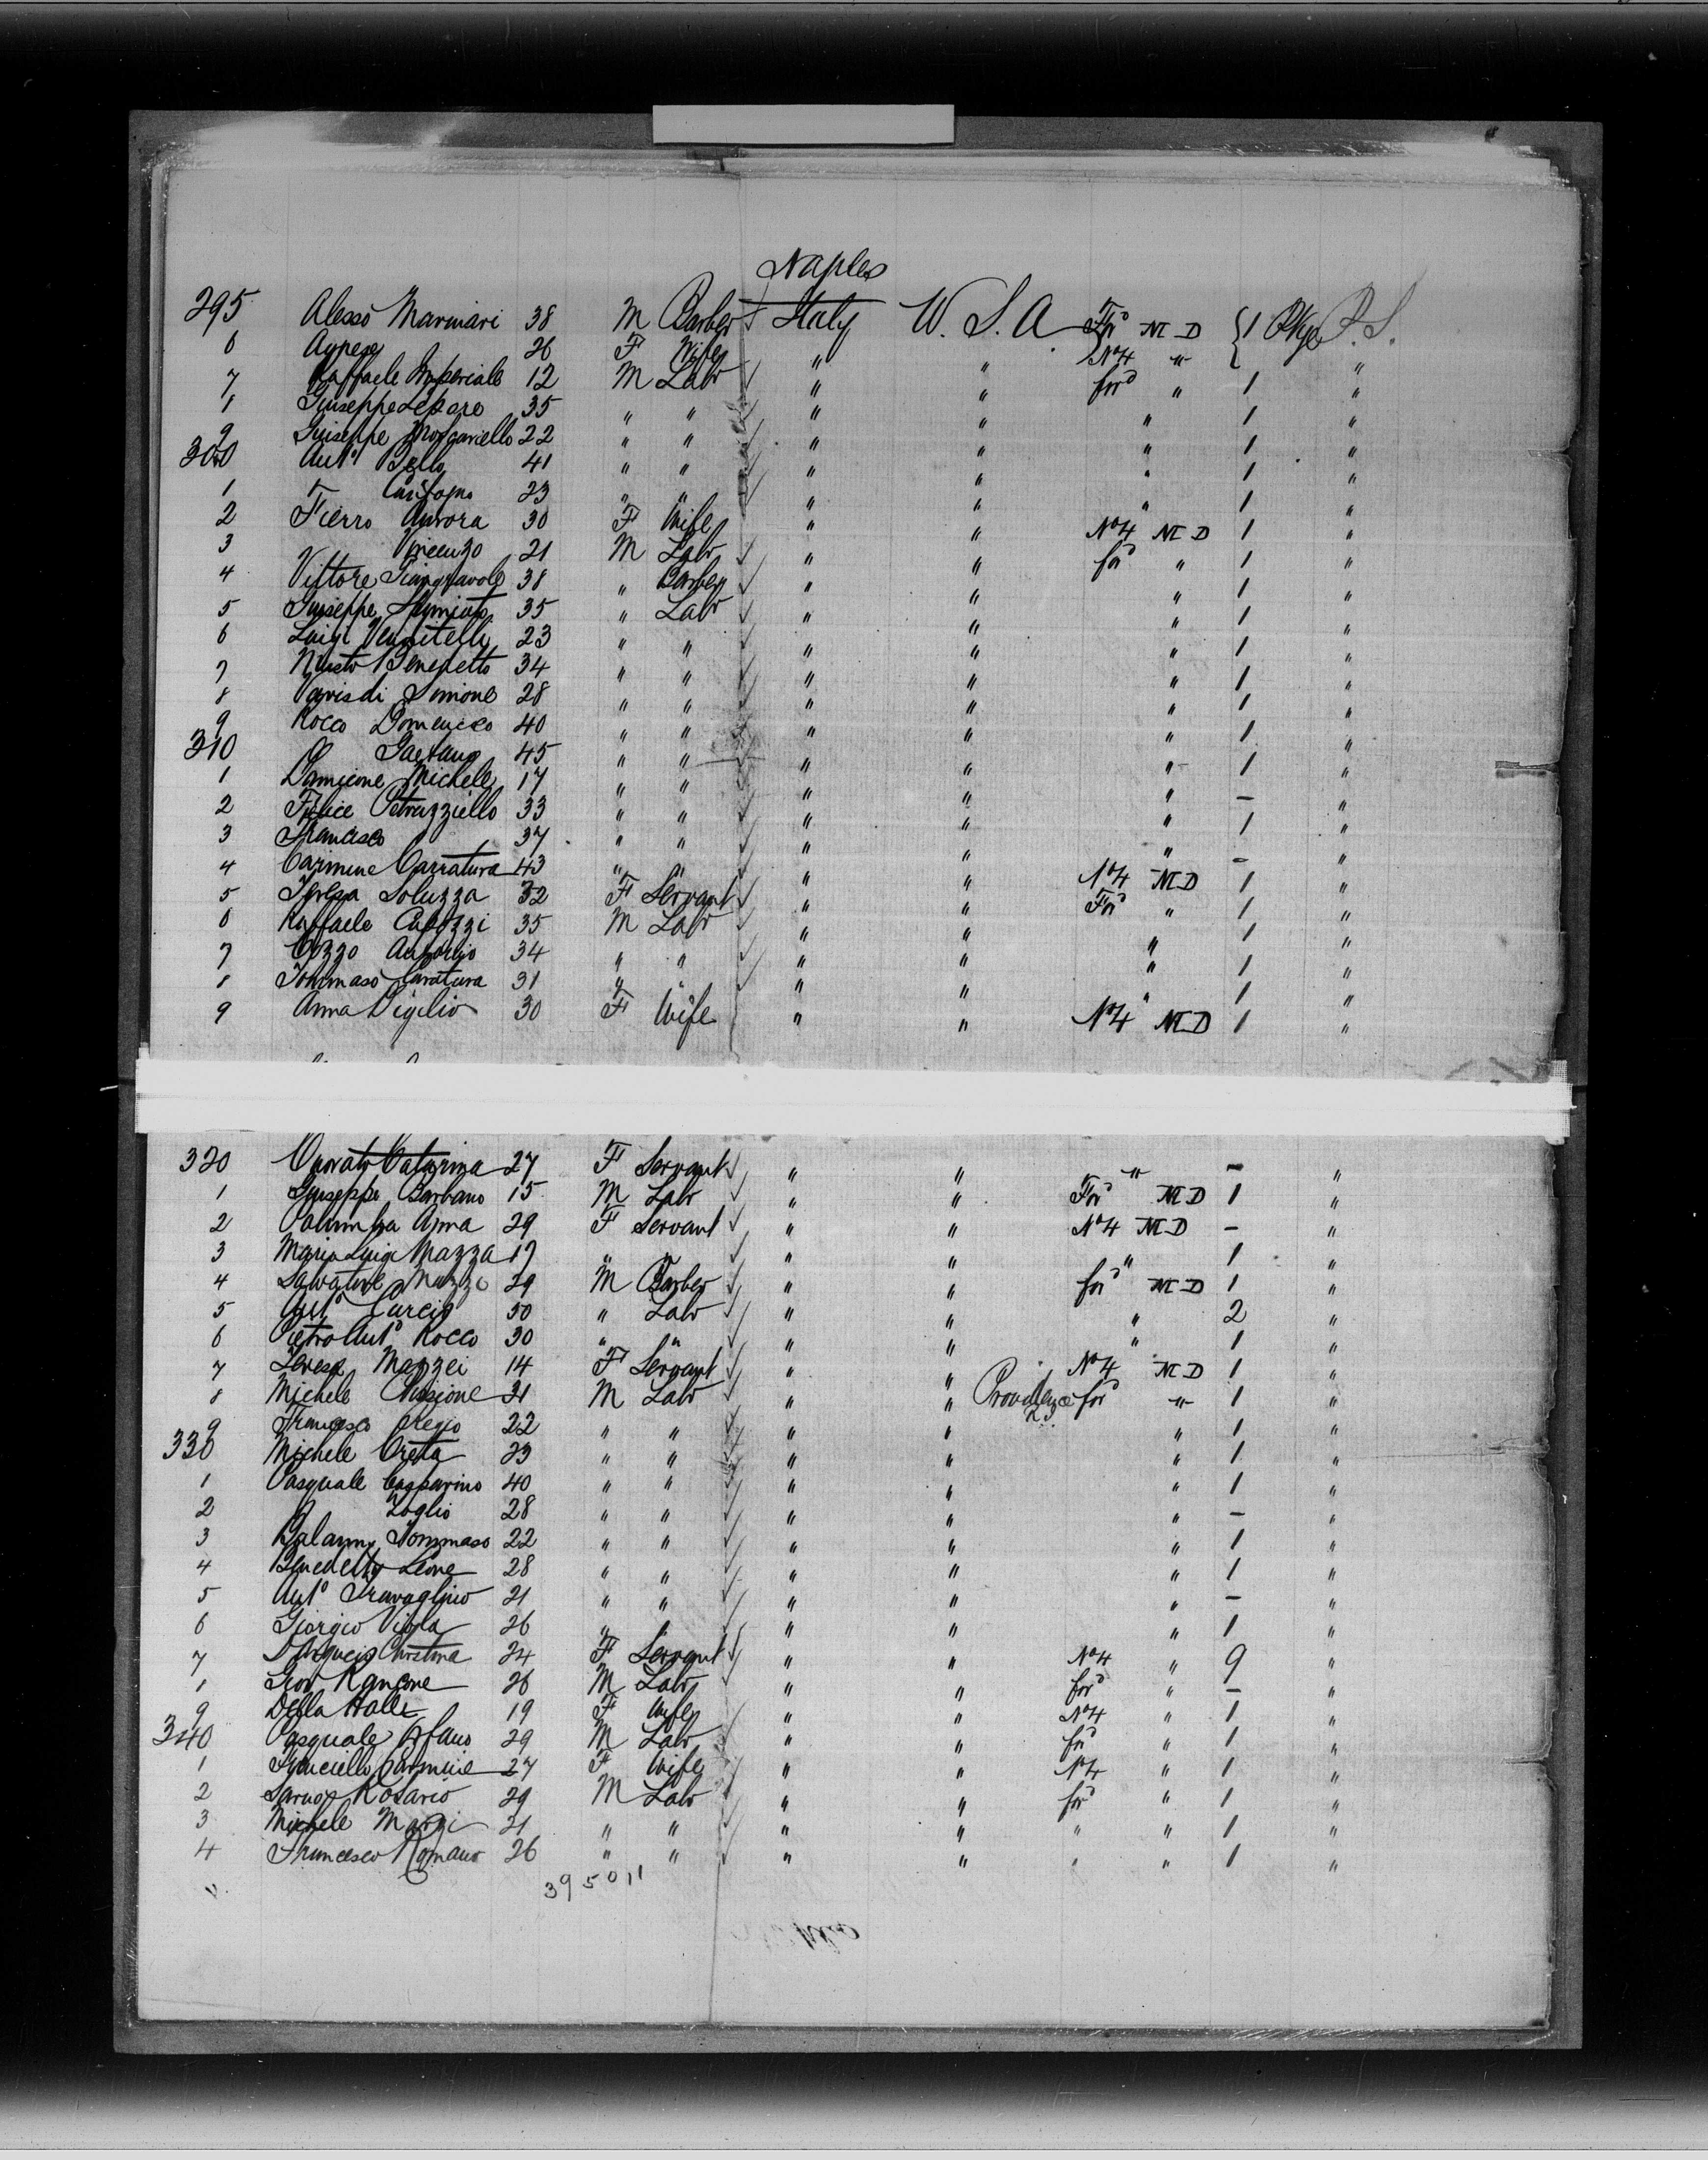 Naples
295 Alesso Marinari 38 M Barber Italy U. S. A For^d M D { 1 Pkge P. S.
6 Agnese 26 F Wife " " No 4 " "
7 Raffaele Imperiale 12 M Lab " " for^d " 1 "
8 Giuseppe 35 " " " " " 1 "
9 Giuseppe 22 " " " " " 1 "
300 Ant^o Bello 41 " " " " " 1 "
1 " 23 " " " " " 1 "
2 Fierro Aurora 30 F Wife " " No 4 M D 1 "
3 Vincenzo 21 M Lab " " for^d " 1 "
4 Vittore 38 " Barber " " " 1 "
5 Giuseppe 35 " Lab " " " 1 "
6 Luigi Venditelli 23 " " " " " 1 "
7 Benedetto 34 " " " " " 1 "
8 Simone 28 " " " " " 1 "
9 Rocco Domenico 40 " " " " " 1 "
310 " Gaetano 45 " " " " " 1 "
1 Damione Michele 17 " " " " " - "
2 Felice Petruzziello 33 " " " " " 1 "
3 Francesco 37 " " " " " - "
4 Carmine Carratura 43 " " " " No 4 M D 1 "
5 Teresa Soluzza 32 F Servant " " For^d " 1 "
6 Raffaele Capozzi 35 M Lab " " " 1 "
7 Cozzo Antonio 34 " " " " " 1 "
8 Tommaso Caratura 31 " " " " " 1 "
9 Anna Vigilio 30 F Wife " " No 4 M D 1 "
320 Onorato Catarina 27 F Servant " " " - "
1 Giuseppe Barbano 15 M Lab " " For^d M D 1 "
2 Palumba Anna 29 F Servant " " No 4 M D - "
3 Maria Luigi Mazza 17 " " " " " 1 "
4 Salvatore Mazze 29 M Barber " " for^d M D 1 "
5 Ant^o Curcio 50 " Lab " " " 2 "
6 Pietro Ant^o Rocco 30 " " " " " 1 "
7 Teresa Mazzei 14 F Servant " " No 4 M D 1 "
8 Michele 21 M Lab " " Providence for^d " 1 "
9 Francesco Regio 22 " " " " " 1 "
330 Michele Creta 23 " " " " " 1 "
1 Pasquale Casparino 40 " " " " " 1 "
2 " Zoglio 28 " " " " " - "
3 Tommaso 22 " " " " " 1 "
4 Benedetto Leone 28 " " " " " 1 "
5 Ant^o Travaglino 21 " " " " " - "
6 Giorgio Viola 26 " " " " " 1 "
7 Christina 24 F Servant " " No 4 " 9 "
8 Giov Rancone 26 M Lab " " for^d " - "
9 Della Valle 19 F Wife " " No 4 " 1 "
340 Pasquale Orfano 29 M Lab " " for^d " 1 "
1 Carmine 27 F Wife " " No 4 " 1 "
2 Sarno Rosario 29 M Lab " " for^d " 1 "
3 Michele Marzi 21 " " " " " " 1 "
4 Francesco Romano 26 " " " " " " 1 "
395011